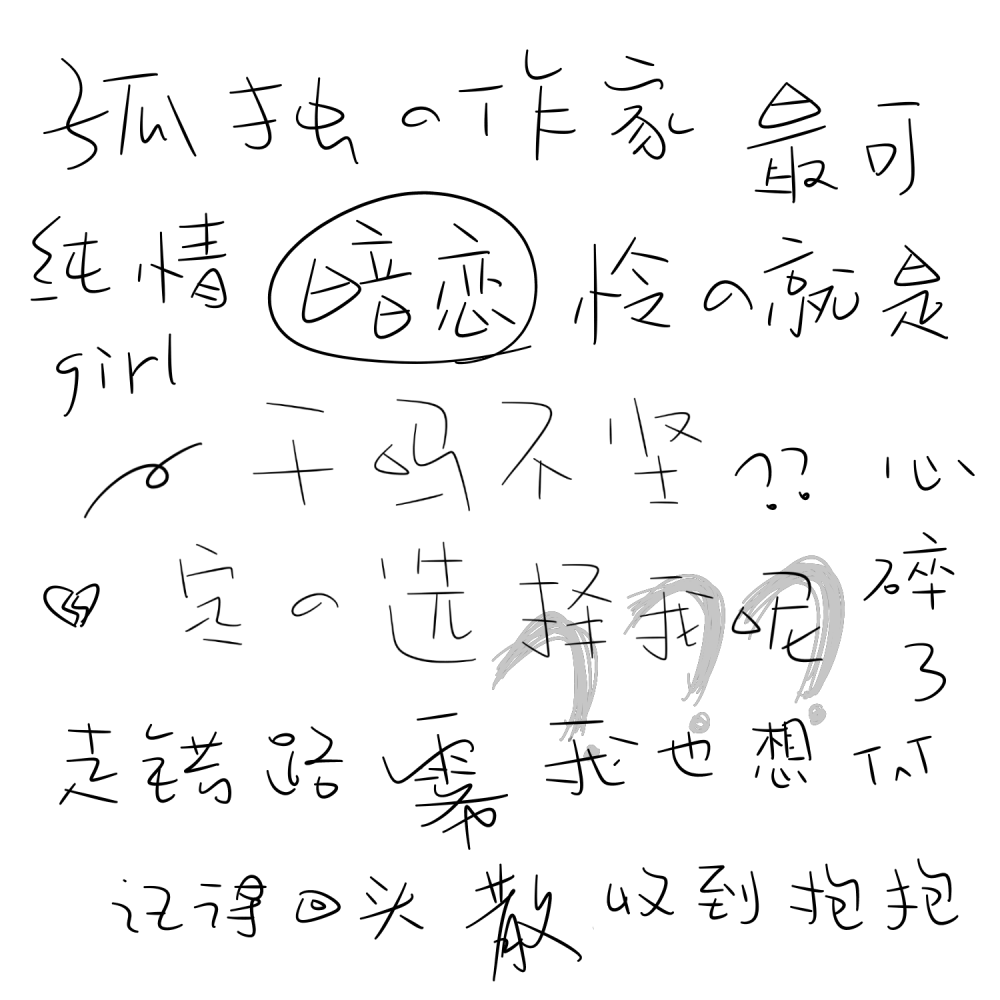 孤独の作家
最可
怜の就是
纯情
girl
暗恋
干吗不坚
定の选择我呢
??
???
心
碎
了
走错路
记得回头
幕
散
我也想
收到抱抱
TnT